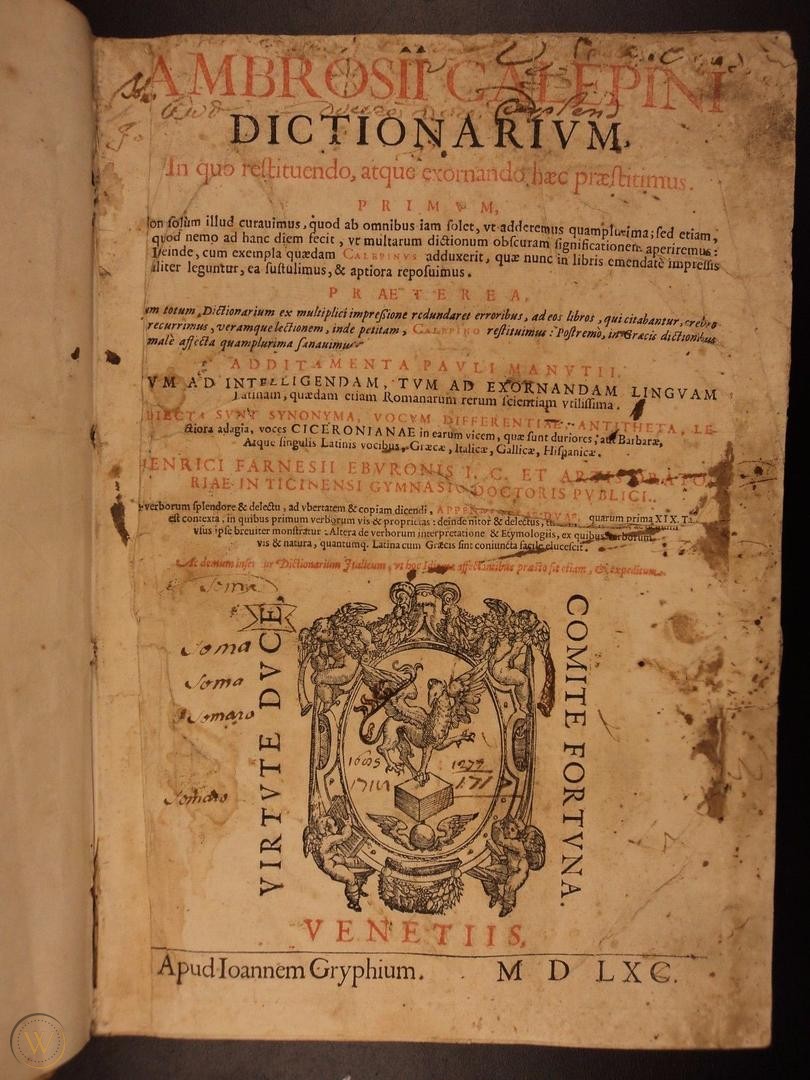 AMBROSII CALEPINI
DICTIONARIVM,
In quo reſtituendo, atque exornando, hæc præſtitimus.
PRIMVM,
on ſolùm illud curauimus, quod ab omnibus iam ſolet, vt adderemus quamplurima; ſed etiam,
quod nemo ad hanc diem fecit, vt multarum dictionum obſcuram ſignificationem aperiremus:
Deinde, cum exempla quædam CALEPINVS adduxerit, quæ nunc in libris emendatè impreſſis
aliter leguntur, ea ſuſtulimus, & aptiora repoſuimus.
PRAETEREA,
um totum, Dictionarium ex multiplici impreſſione redundaret erroribus, ad eos libros, qui citabantur, crebro
recurrimus, veramque lectionem, inde petitam, CALEPINO reſtituimus: Poſtremò, in Græcis dictionibus
malè affecta quamplurima ſanauimus
ADDITAMENTA PAVLI MANVTII,
VM AD INTELLIGENDAM, TVM AD EXORNANDAM LINGVAM
Latinam, quædam etiam Romanarum rerum ſcientiam vtiliſſima.
DIECTA SVNT SYNONYMA, VOCVM DIFFERENTIAE, ANTITHETA, LE-
ctiora adagia, voces CICERONIANAE in earum vicem, quæ ſunt duriores, aut Barbaræ,
Atque ſingulis Latinis vocibus, Græcæ, Italicæ, Gallicæ, Hiſpanicæ.
HENRICI FARNESII EBVRONIS I. C. ET
RIAE IN TICINENSI GYMNASIO DOCTORIS PVBLICI.
verborum ſplendore & delectu, ad vbertatem & copiam dicendi,
eſt contexta, in quibus primum verborum vis & proprietas: deinde nitor & delectus, quarum prima XIX. Ta
vſus ipſe breuiter monſtratur: Altera de verborum interpretatione & Etymologiis, ex quibus verborum
vis & natura, quantumq. Latina cum Græcis ſint coniuncta facilè elucescit.
Ac demum inſer Dictionarium Italicum, vt hoc Idioma affectantibus præſto ſit etiam, & expeditum.
Soma
Soma
Soma
Somaro
Somaro
VIRTVTE DVCE,
COMITE FORTVNA.
1605
1277
171
VENETIIS,
Apud Ioannem Gryphium. M D LXC.
W